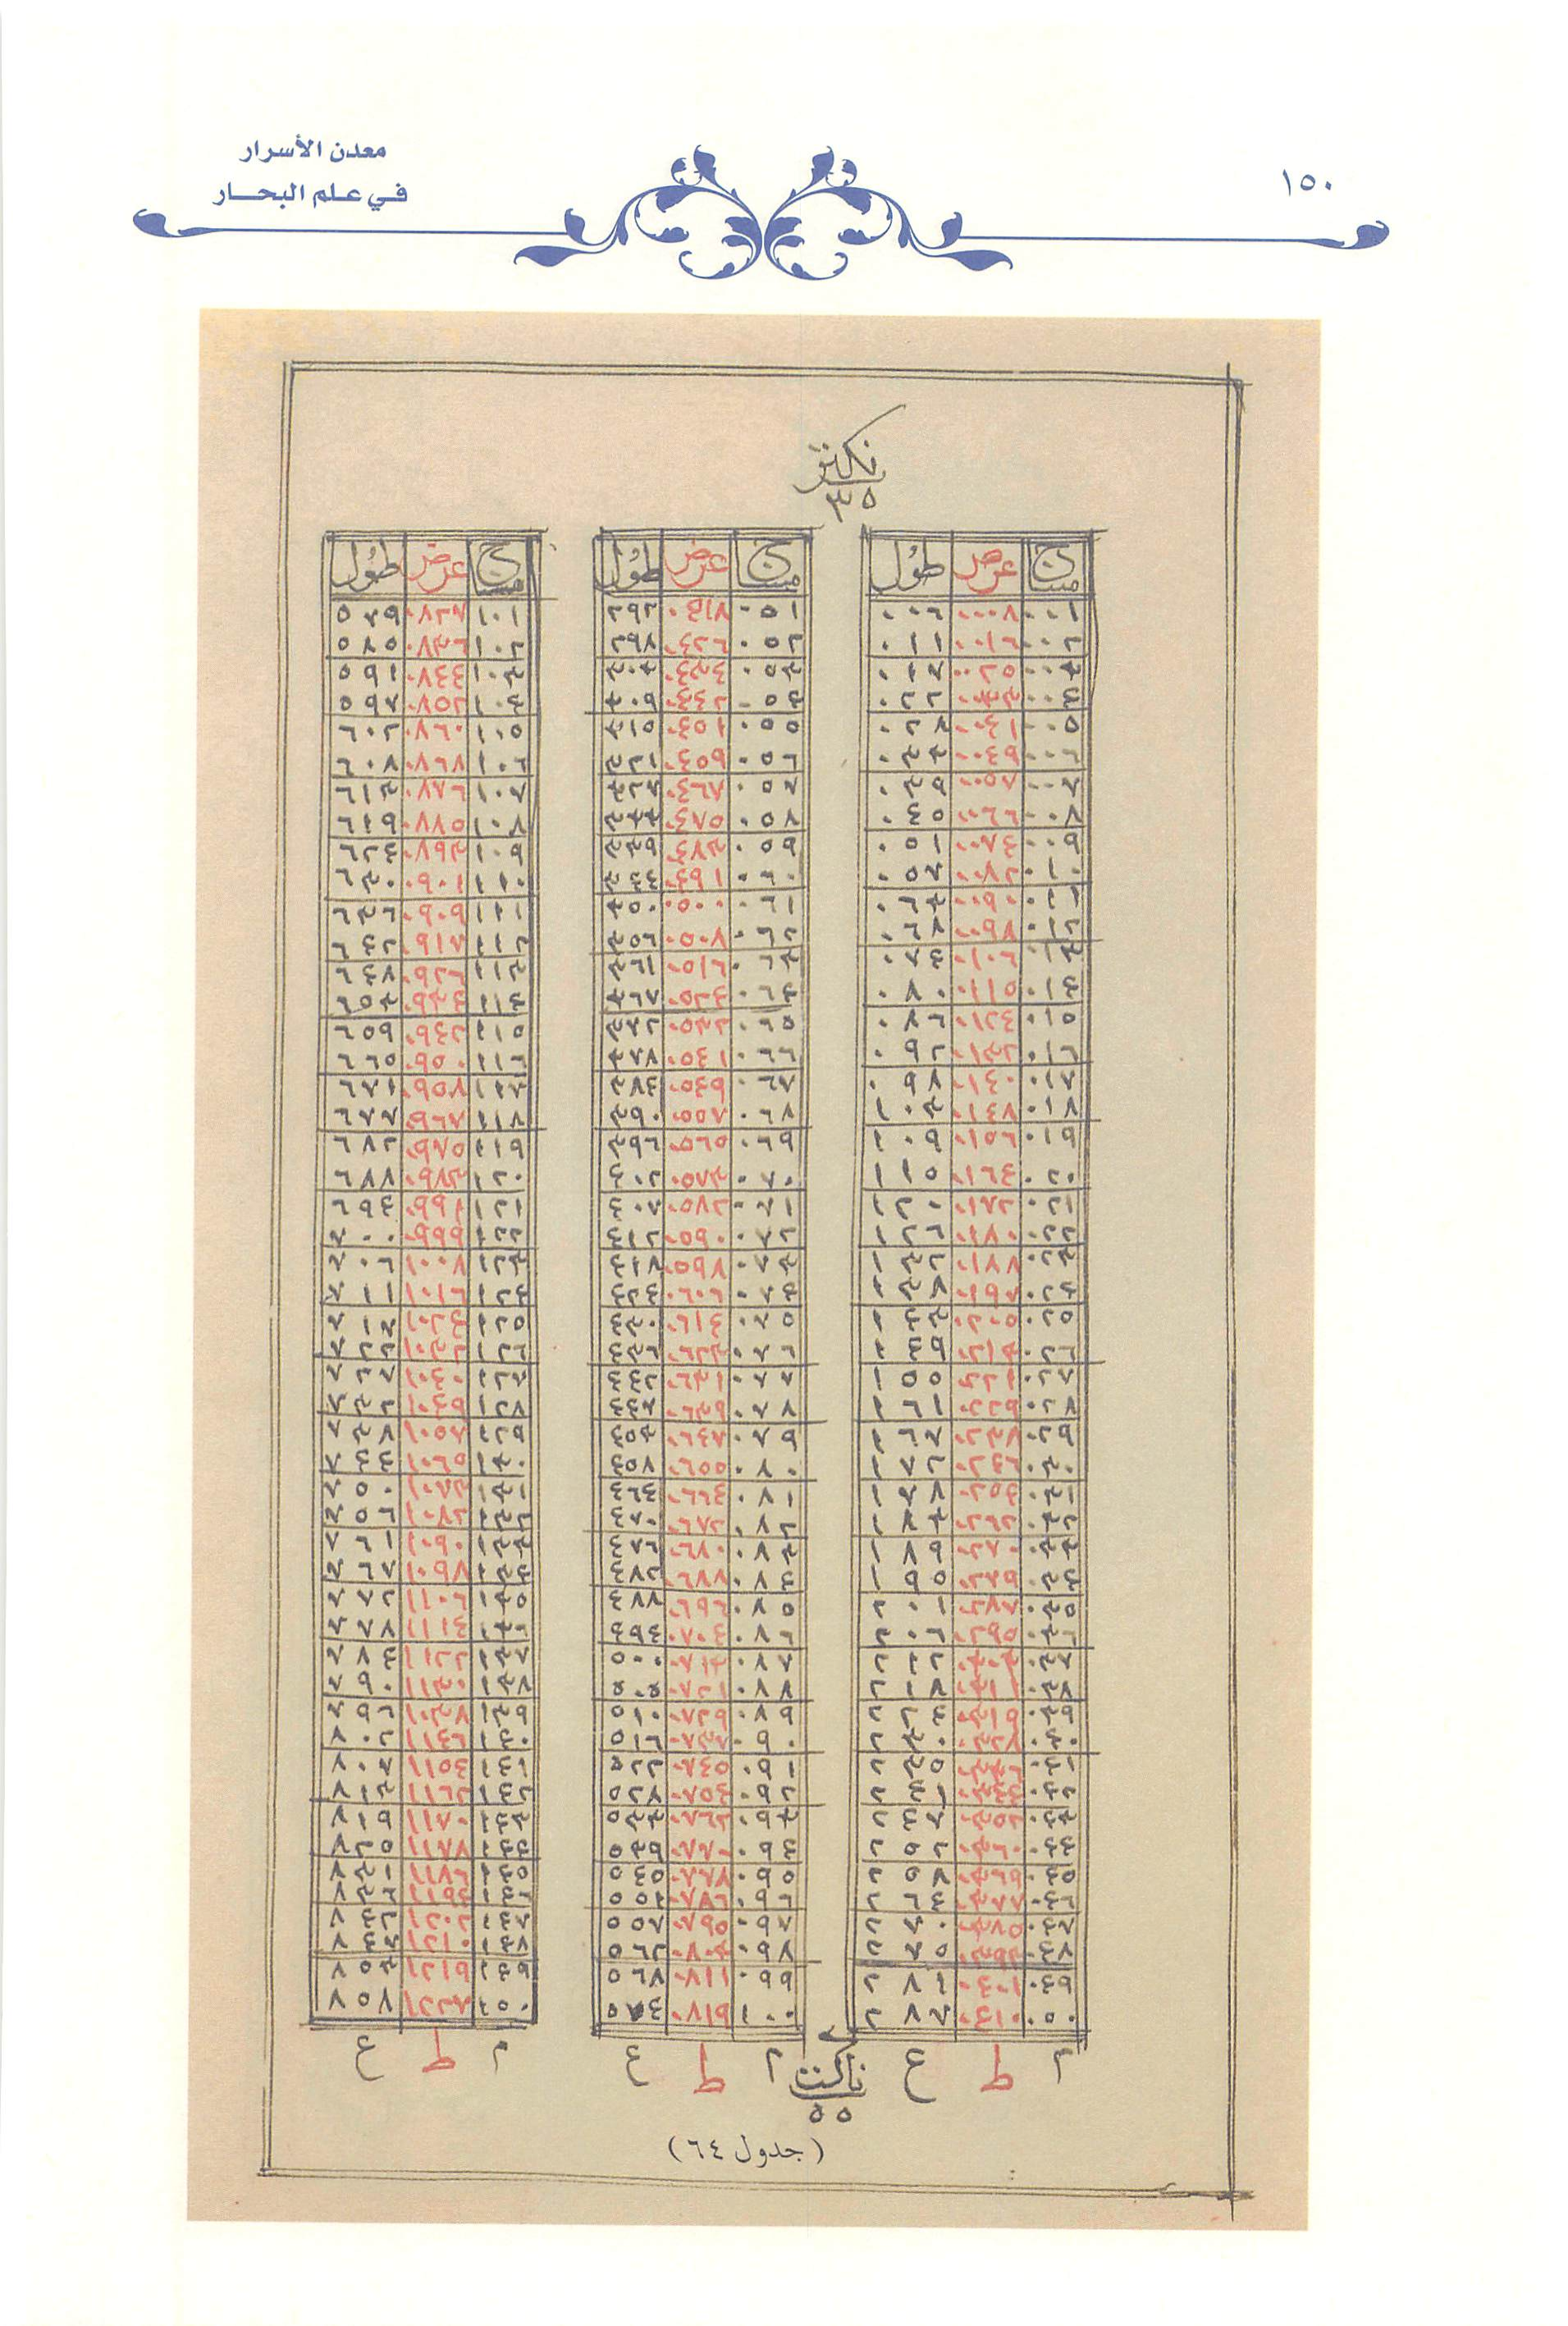 معدن الأسرار
في علم البحار
١٥٠
نكتر
٣٥
مساج عرض طول
٠٠١ ٠٠٠٨ ٠٠٦
٠٠٢ ٠٠١٦ ٠١١
٠٠٣ ٠٠٢٥ ٠١٧
٠٠٤ ٠٠٣٣ ٠٢٢
٠٠٥ ٠٠٤١ ٠٢٨
٠٠٦ ٠٠٤٩ ٠٣٣
٠٠٧ ٠٠٥٨ ٠٣٩
٠٠٨ ٠٠٦٦ ٠٤٥
٠٠٩ ٠٠٧٤ ٠٥١
٠١٠ ٠٠٨٢ ٠٥٧
٠١١ ٠٠٩٠ ٠٦٣
٠١٢ ٠٠٩٨ ٠٦٨
٠١٣ ٠١٠٦ ٠٧٤
٠١٤ ٠١١٥ ٠٨٠
٠١٥ ٠١٢٤ ٠٨٦
٠١٦ ٠١٣٢ ٠٩٢
٠١٧ ٠١٤٠ ٠٩٨
٠١٨ ٠١٤٧ ١٠٣
٠١٩ ٠١٥٦ ١٠٩
٠٢٠ ٠١٦٤ ١١٥
٠٢١ ٠١٧٢ ١٢٠
٠٢٢ ٠١٨٠ ١٢٦
٠٢٣ ٠١٨٨ ١٣٢
٠٢٤ ٠١٩٧ ١٣٨
٠٢٥ ٠٢٠٥ ١٤٣
٠٢٦ ٠٢١٣ ١٤٩
٠٢٧ ٠٢٢١ ١٥٥
٠٢٨ ٠٢٢٩ ١٦١
٠٢٩ ٠٢٣٨ ١٦٧
٠٣٠ ٠٢٤٦ ١٧٢
٠٣١ ٠٢٥٤ ١٧٨
٠٣٢ ٠٢٦٢ ١٨٣
٠٣٣ ٠٢٧٠ ١٨٩
٠٣٤ ٠٢٧٩ ١٩٥
٠٣٥ ٠٢٨٧ ٢٠١
٠٣٦ ٠٢٩٥ ٢٠٦
٠٣٧ ٠٣٠٣ ٢١٢
٠٣٨ ٠٣١١ ٢١٨
٠٣٩ ٠٣١٩ ٢٢٤
٠٤٠ ٠٣٢٨ ٢٣٠
٠٤١ ٠٣٣٦ ٢٣٥
٠٤٢ ٠٣٤٤ ٢٤١
٠٤٣ ٠٣٥٢ ٢٤٧
٠٤٤ ٠٣٦٠ ٢٥٢
٠٤٥ ٠٣٦٩ ٢٥٨
٠٤٦ ٠٣٧٧ ٢٦٤
٠٤٧ ٠٣٨٥ ٢٧٠
٠٤٨ ٠٣٩٣ ٢٧٥
٠٤٩ ٠٤٠١ ٢٨١
٠٥٠ ٠٤١٠ ٢٨٧
م ط ع
مساج عرض طول
٠٥١ ٠٤١٨ ٢٩٢
٠٥٢ ٠٤٢٦ ٢٩٨
٠٥٣ ٠٤٣٤ ٣٠٤
٠٥٤ ٠٤٤٢ ٣٠٩
٠٥٥ ٠٤٥١ ٣١٥
٠٥٦ ٠٤٥٩ ٣٢١
٠٥٧ ٠٤٦٧ ٣٢٧
٠٥٨ ٠٤٧٥ ٣٣٣
٠٥٩ ٠٤٨٣ ٣٣٩
٠٦٠ ٠٤٩١ ٣٤٤
٠٦١ ٠٥٠٠ ٣٥٠
٠٦٢ ٠٥٠٨ ٣٥٦
٠٦٣ ٠٥١٦ ٣٦١
٠٦٤ ٠٥٢٤ ٣٦٧
٠٦٥ ٠٥٣٢ ٣٧٢
٠٦٦ ٠٥٤١ ٣٧٨
٠٦٧ ٠٥٤٩ ٣٨٤
٠٦٨ ٠٥٥٧ ٣٩٠
٠٦٩ ٠٥٦٥ ٣٩٦
٠٧٠ ٠٥٧٣ ٤٠٢
٠٧١ ٠٥٨٢ ٤٠٧
٠٧٢ ٠٥٩٠ ٤١٢
٠٧٣ ٠٥٩٨ ٤١٨
٠٧٤ ٠٦٠٦ ٤٢٤
٠٧٥ ٠٦١٤ ٤٣٠
٠٧٦ ٠٦٢٣ ٤٣٦
٠٧٧ ٠٦٣١ ٤٤٢
٠٧٨ ٠٦٣٩ ٤٤٧
٠٧٩ ٠٦٤٧ ٤٥٣
٠٨٠ ٠٦٥٥ ٤٥٨
٠٨١ ٠٦٦٤ ٤٦٤
٠٨٢ ٠٦٧٢ ٤٧٠
٠٨٣ ٠٦٨٠ ٤٧٦
٠٨٤ ٠٦٨٨ ٤٨٢
٠٨٥ ٠٦٩٦ ٤٨٨
٠٨٦ ٠٧٠٤ ٤٩٤
٠٨٧ ٠٧١٣ ٥٠٠
٠٨٨ ٠٧٢١ ٥٠٥
٠٨٩ ٠٧٢٩ ٥١٠
٠٩٠ ٠٧٣٧ ٥١٦
٠٩١ ٠٧٤٥ ٥٢٢
٠٩٢ ٠٧٥٤ ٥٢٧
٠٩٣ ٠٧٦٢ ٥٣٣
٠٩٤ ٠٧٧٠ ٥٣٩
٠٩٥ ٠٧٧٨ ٥٤٥
٠٩٦ ٠٧٨٦ ٥٥١
٠٩٧ ٠٧٩٥ ٥٥٧
٠٩٨ ٠٨٠٣ ٥٦٢
٠٩٩ ٠٨١١ ٥٦٨
١٠٠ ٠٨١٩ ٥٧٤
م ط ع
مساج عرض طول
١٠١ ٠٨٢٧ ٥٧٩
١٠٢ ٠٨٣٦ ٥٨٥
١٠٣ ٠٨٤٤ ٥٩١
١٠٤ ٠٨٥٢ ٥٩٧
١٠٥ ٠٨٦٠ ٦٠٢
١٠٦ ٠٨٦٨ ٦٠٨
١٠٧ ٠٨٧٦ ٦١٣
١٠٨ ٠٨٨٥ ٦١٩
١٠٩ ٠٨٩٣ ٦٢٤
١١٠ ٠٩٠١ ٦٣٠
١١١ ٠٩٠٩ ٦٣٦
١١٢ ٠٩١٨ ٦٤٢
١١٣ ٠٩٢٦ ٦٤٨
١١٤ ٠٩٣٤ ٦٥٣
١١٥ ٠٩٤٢ ٦٥٩
١١٦ ٠٩٥٠ ٦٦٥
١١٧ ٠٩٥٨ ٦٧١
١١٨ ٠٩٦٧ ٦٧٧
١١٩ ٠٩٧٥ ٦٨٢
١٢٠ ٠٩٨٣ ٦٨٨
١٢١ ٠٩٩١ ٦٩٤
١٢٢ ٠٩٩٩ ٧٠٠
١٢٣ ١٠٠٨ ٧٠٦
١٢٤ ١٠١٦ ٧١١
١٢٥ ١٠٢٤ ٧١٧
١٢٦ ١٠٣٢ ٧٢٢
١٢٧ ١٠٤٠ ٧٢٧
١٢٨ ١٠٤٩ ٧٣٢
١٢٩ ١٠٥٧ ٧٣٨
١٣٠ ١٠٦٥ ٧٤٤
١٣١ ١٠٧٣ ٧٥٠
١٣٢ ١٠٨٢ ٧٥٦
١٣٣ ١٠٩٠ ٧٦١
١٣٤ ١٠٩٨ ٧٦٧
١٣٥ ١١٠٦ ٧٧٢
١٣٦ ١١١٤ ٧٧٨
١٣٧ ١١٢٢ ٧٨٤
١٣٨ ١١٣٠ ٧٩٠
١٣٩ ١١٣٨ ٧٩٦
١٤٠ ١١٤٦ ٨٠٢
١٤١ ١١٥٤ ٨٠٧
١٤٢ ١١٦٢ ٨١٣
١٤٣ ١١٧٠ ٨١٩
١٤٤ ١١٧٨ ٨٢٥
١٤٥ ١١٨٦ ٨٣١
١٤٦ ١١٩٤ ٨٣٦
١٤٧ ١٢٠٢ ٨٤٢
١٤٨ ١٢١٠ ٨٤٧
١٤٩ ١٢١٩ ٨٥٣
١٥٠ ١٢٢٧ ٨٥٨
م ط ع
ناكت
٥٥
(جدول ٦٤)